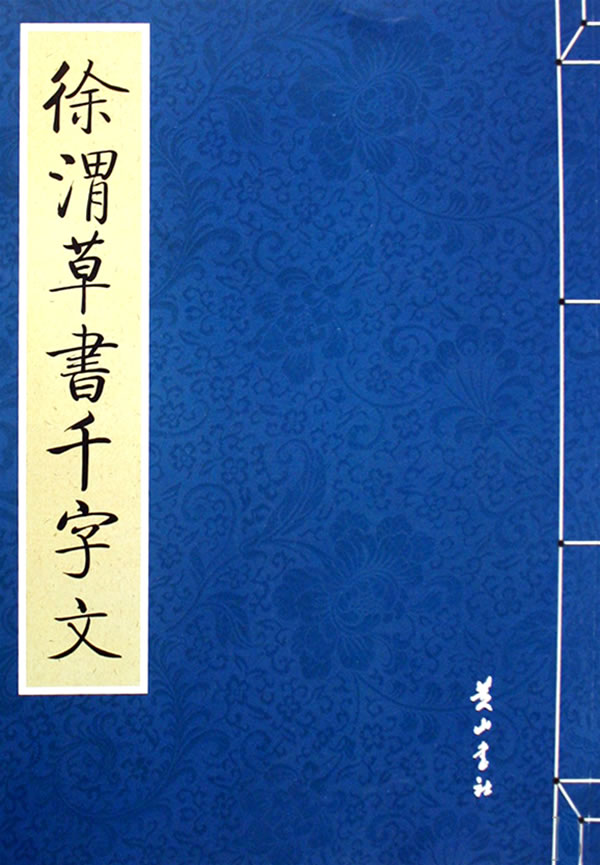 徐渭草書千字文
黄山书社